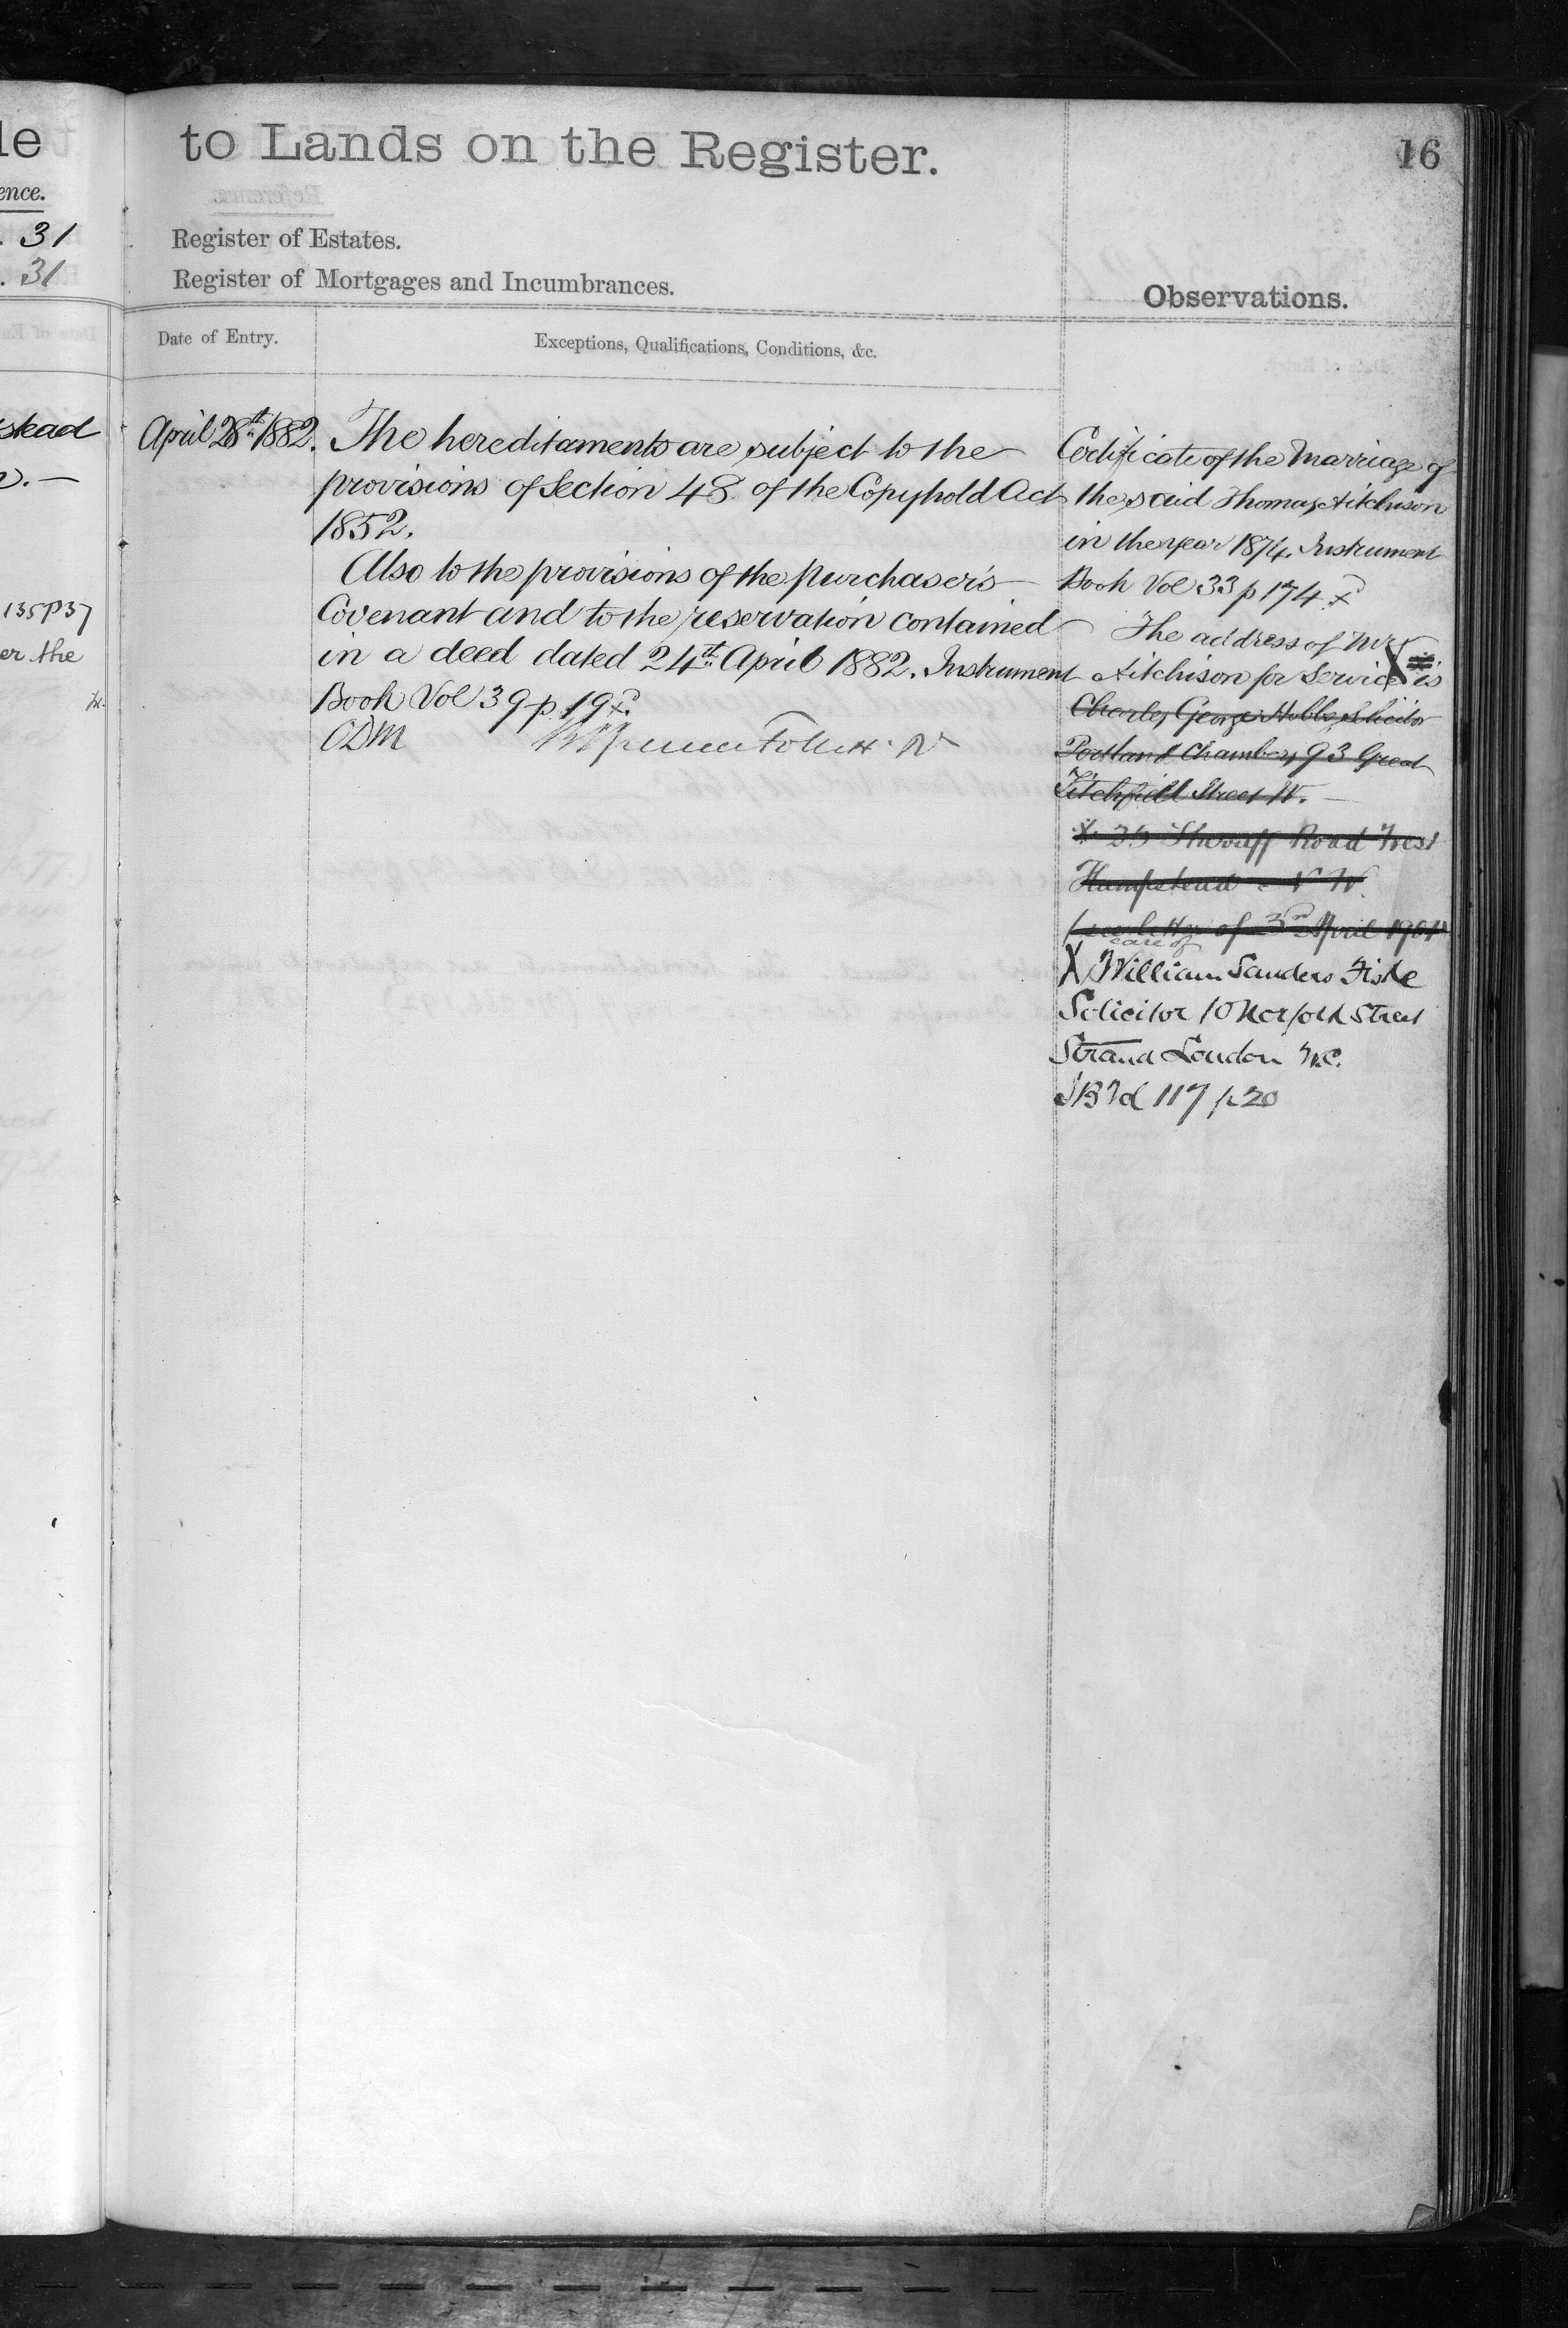 le
ence.
. 31
. 31
stead
135 P 37
er the
to Lands on the Register.
16
Register of Estates.
Register of Mortgages and Incumbrances.
Observations.
Date of Entry.
Exceptions, Qualifications, Conditions, &c.
April 28th 1882.
The hereditaments are subject to the
provisions of Section 48 of the Copyhold Act
1852.
Also to the provisions of the purchaser's
Covenant and to the reservation contained
in a deed dated 24th April 1882. Instrument
Book Vol 39 p 19
CDM
Certificate of the Marriage of
the said Thomas Aitchison
in the year 1874. Instrument
Book Vol 33 p 174
The address of Mr
Aitchison for Service is
Charles George Hobbs, Solicitor
Portland Chambers, 93 Great
Titchfield Street W.
X 35 Sherriff Road West
Hampstead N W
(see letter of 3rd April 1901
care of
X William Sanders Fiske
Solicitor 10 Norfolk Street
Strand London W.C.
117 p 20